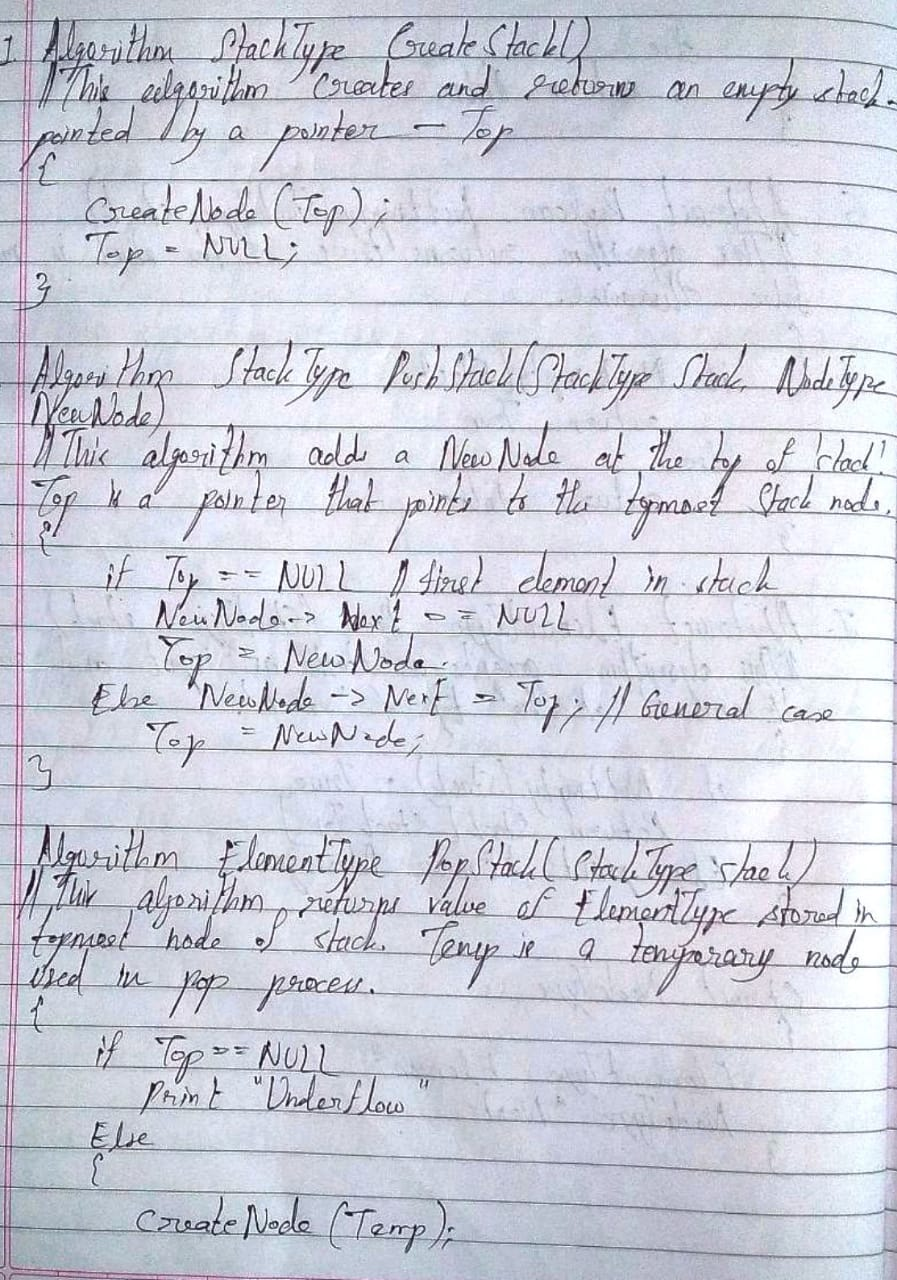 1 Algorithm StackType CreateStack()
// This algorithm creates and returns an empty stack
pointed by a pointer - Top
{
CreateNode (Top);
Top = NULL;
}
Algorithm StackType PushStack(StackType Stack, NodeType
NewNode)
// This algorithm adds a NewNode at the top of 'stack'.
Top is a pointer that points to the topmost Stack node.
{
if Top == NULL // first element in stack
NewNode -> Next == NULL ;
Top = NewNode.
Else NewNode -> Next = Top; // General case
Top = NewNode;
}
Algorithm ElementType PopStack( StackType stack)
// This algorithm returns value of ElementType stored in
topmost node of stack. Temp is a temporary node
used in pop process.
{
if Top == NULL
Print "Underflow"
Else
{
CreateNode (Temp);